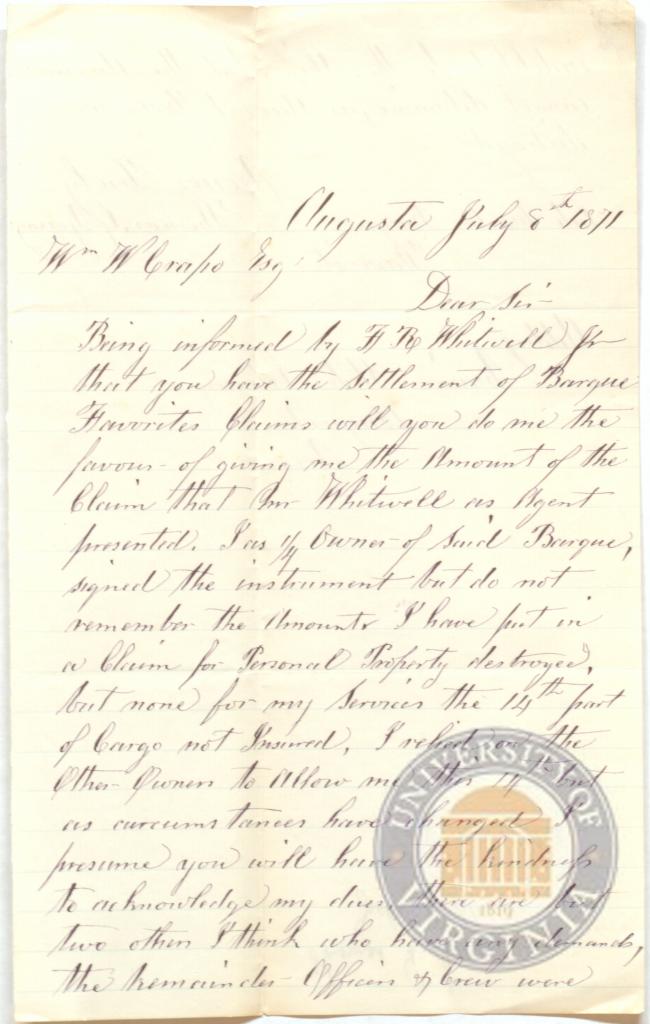 Augusta July 8th 1871
Wm W Crapo Esq
Dear Sir
Being informed by F R Whitwell Jr
that you have the Settlement of Barque
Favorites Claims will you do me the
favour of giving me the Amount of the
Claim that Mr Whitwell as Agent
presented. I as 1/4 Owner of Said Barque,
signed the instrument but do not
remember the Amount I have put in
a Claim for Personal Property destroyed,
but none for my Services the 14th part
of Cargo not Insured, I relied on the
Other Owners to Allow me this 14th but
as curcumstances have changed I
presume you will have the kindness
to acknowledge my dues there are but
two others I think who have any demands,
the remainder Officers & Crew were
UNIVERSITY OF VIRGINIA
1819